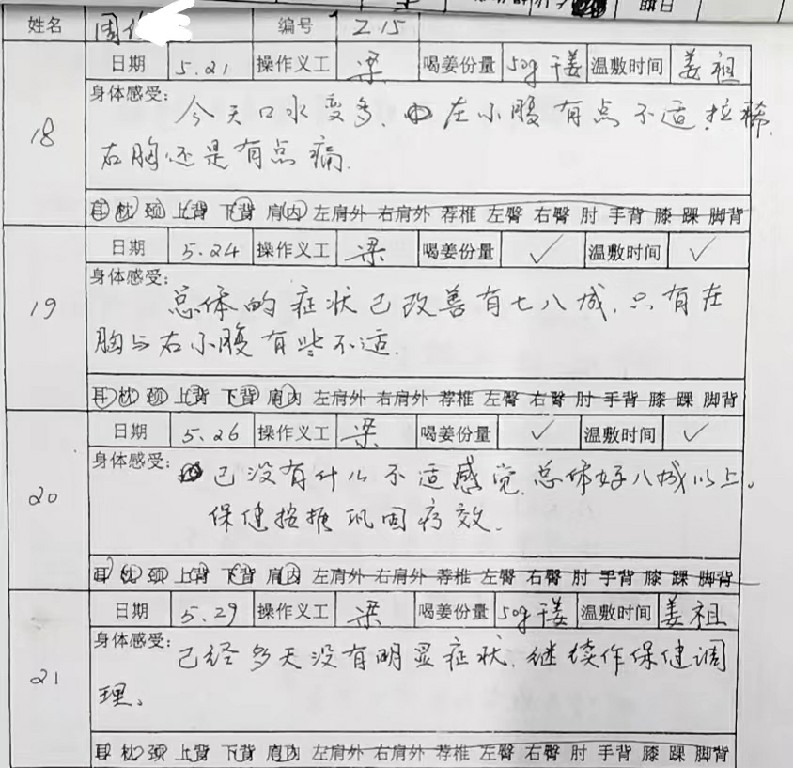 姓名 周 编号 Z15
18 日期 5.21 操作义工 梁 喝姜份量 50g干姜 温敷时间 姜祖
身体感受:
今天口水变多, 左小腹有点不适,拉稀,
右胸还是有点痛.
耳 枕 颈 上背 下背 肩内 左肩外 右肩外 荐椎 左臀 右臀 肘 手背 膝 踝 脚背
19 日期 5.24 操作义工 梁 喝姜份量 ✓ 温敷时间 ✓
身体感受:
总体的症状已改善有七八城,只有在
胸与右小腹有些不适.
耳 枕 颈 上背 下背 肩内 左肩外 右肩外 荐椎 左臀 右臀 肘 手背 膝 踝 脚背
20 日期 5.26 操作义工 梁 喝姜份量 ✓ 温敷时间 ✓
身体感受:
已没有什么不适感觉,总体好八城以上。
保健按振巩固疗效.
耳 枕 颈 上背 下背 肩内 左肩外 右肩外 荐椎 左臀 右臀 肘 手背 膝 踝 脚背
21 日期 5.29 操作义工 梁 喝姜份量 50g干姜 温敷时间 姜祖
身体感受:
已经多天没有明显症状,继续作保健调
理。
耳 枕 颈 上背 下背 肩内 左肩外 右肩外 荐椎 左臀 右臀 肘 手背 膝 踝 脚背